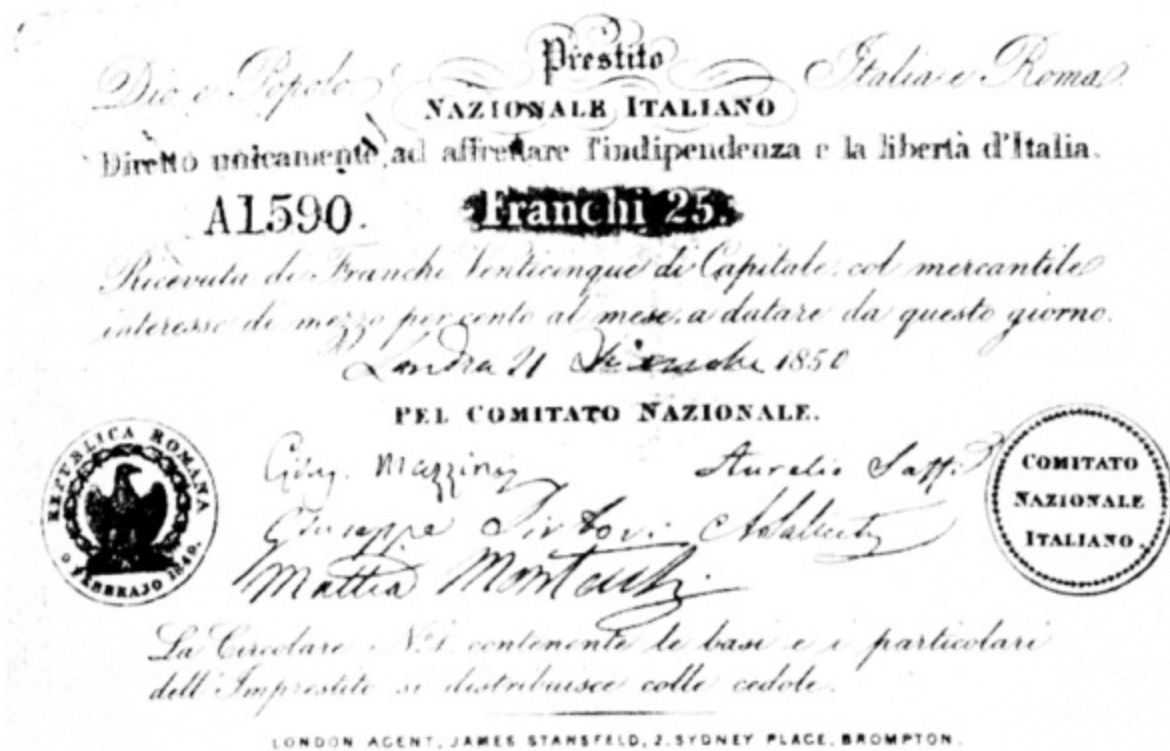 Prestito
Dio e Popolo Italia e Roma
NAZIONALE ITALIANO
Diretto unicamente ad affrettare l'indipendenza e la libertà d'Italia.
A1590. Franchi 25.
Ricevuta di Franchi Venticinque di Capitale, col mercantile
interesso di mezzo per cento al mese, a datare da questo giorno.
Londra 21 1850
PEL COMITATO NAZIONALE.
REPUBBLICA ROMANA
9 FEBBRAJO 1849.
Giuq. Mazzini Aurelio Saffi
Giuseppe Sirtori
Mattia Montecchi
COMITATO
NAZIONALE
ITALIANO.
La Circolare N.1. contenente le basi e i particolari
dell'Imprestito si distribuisce colle cedole.
LONDON AGENT, JAMES STANSFELD, 2, SYDNEY PLACE, BROMPTON.